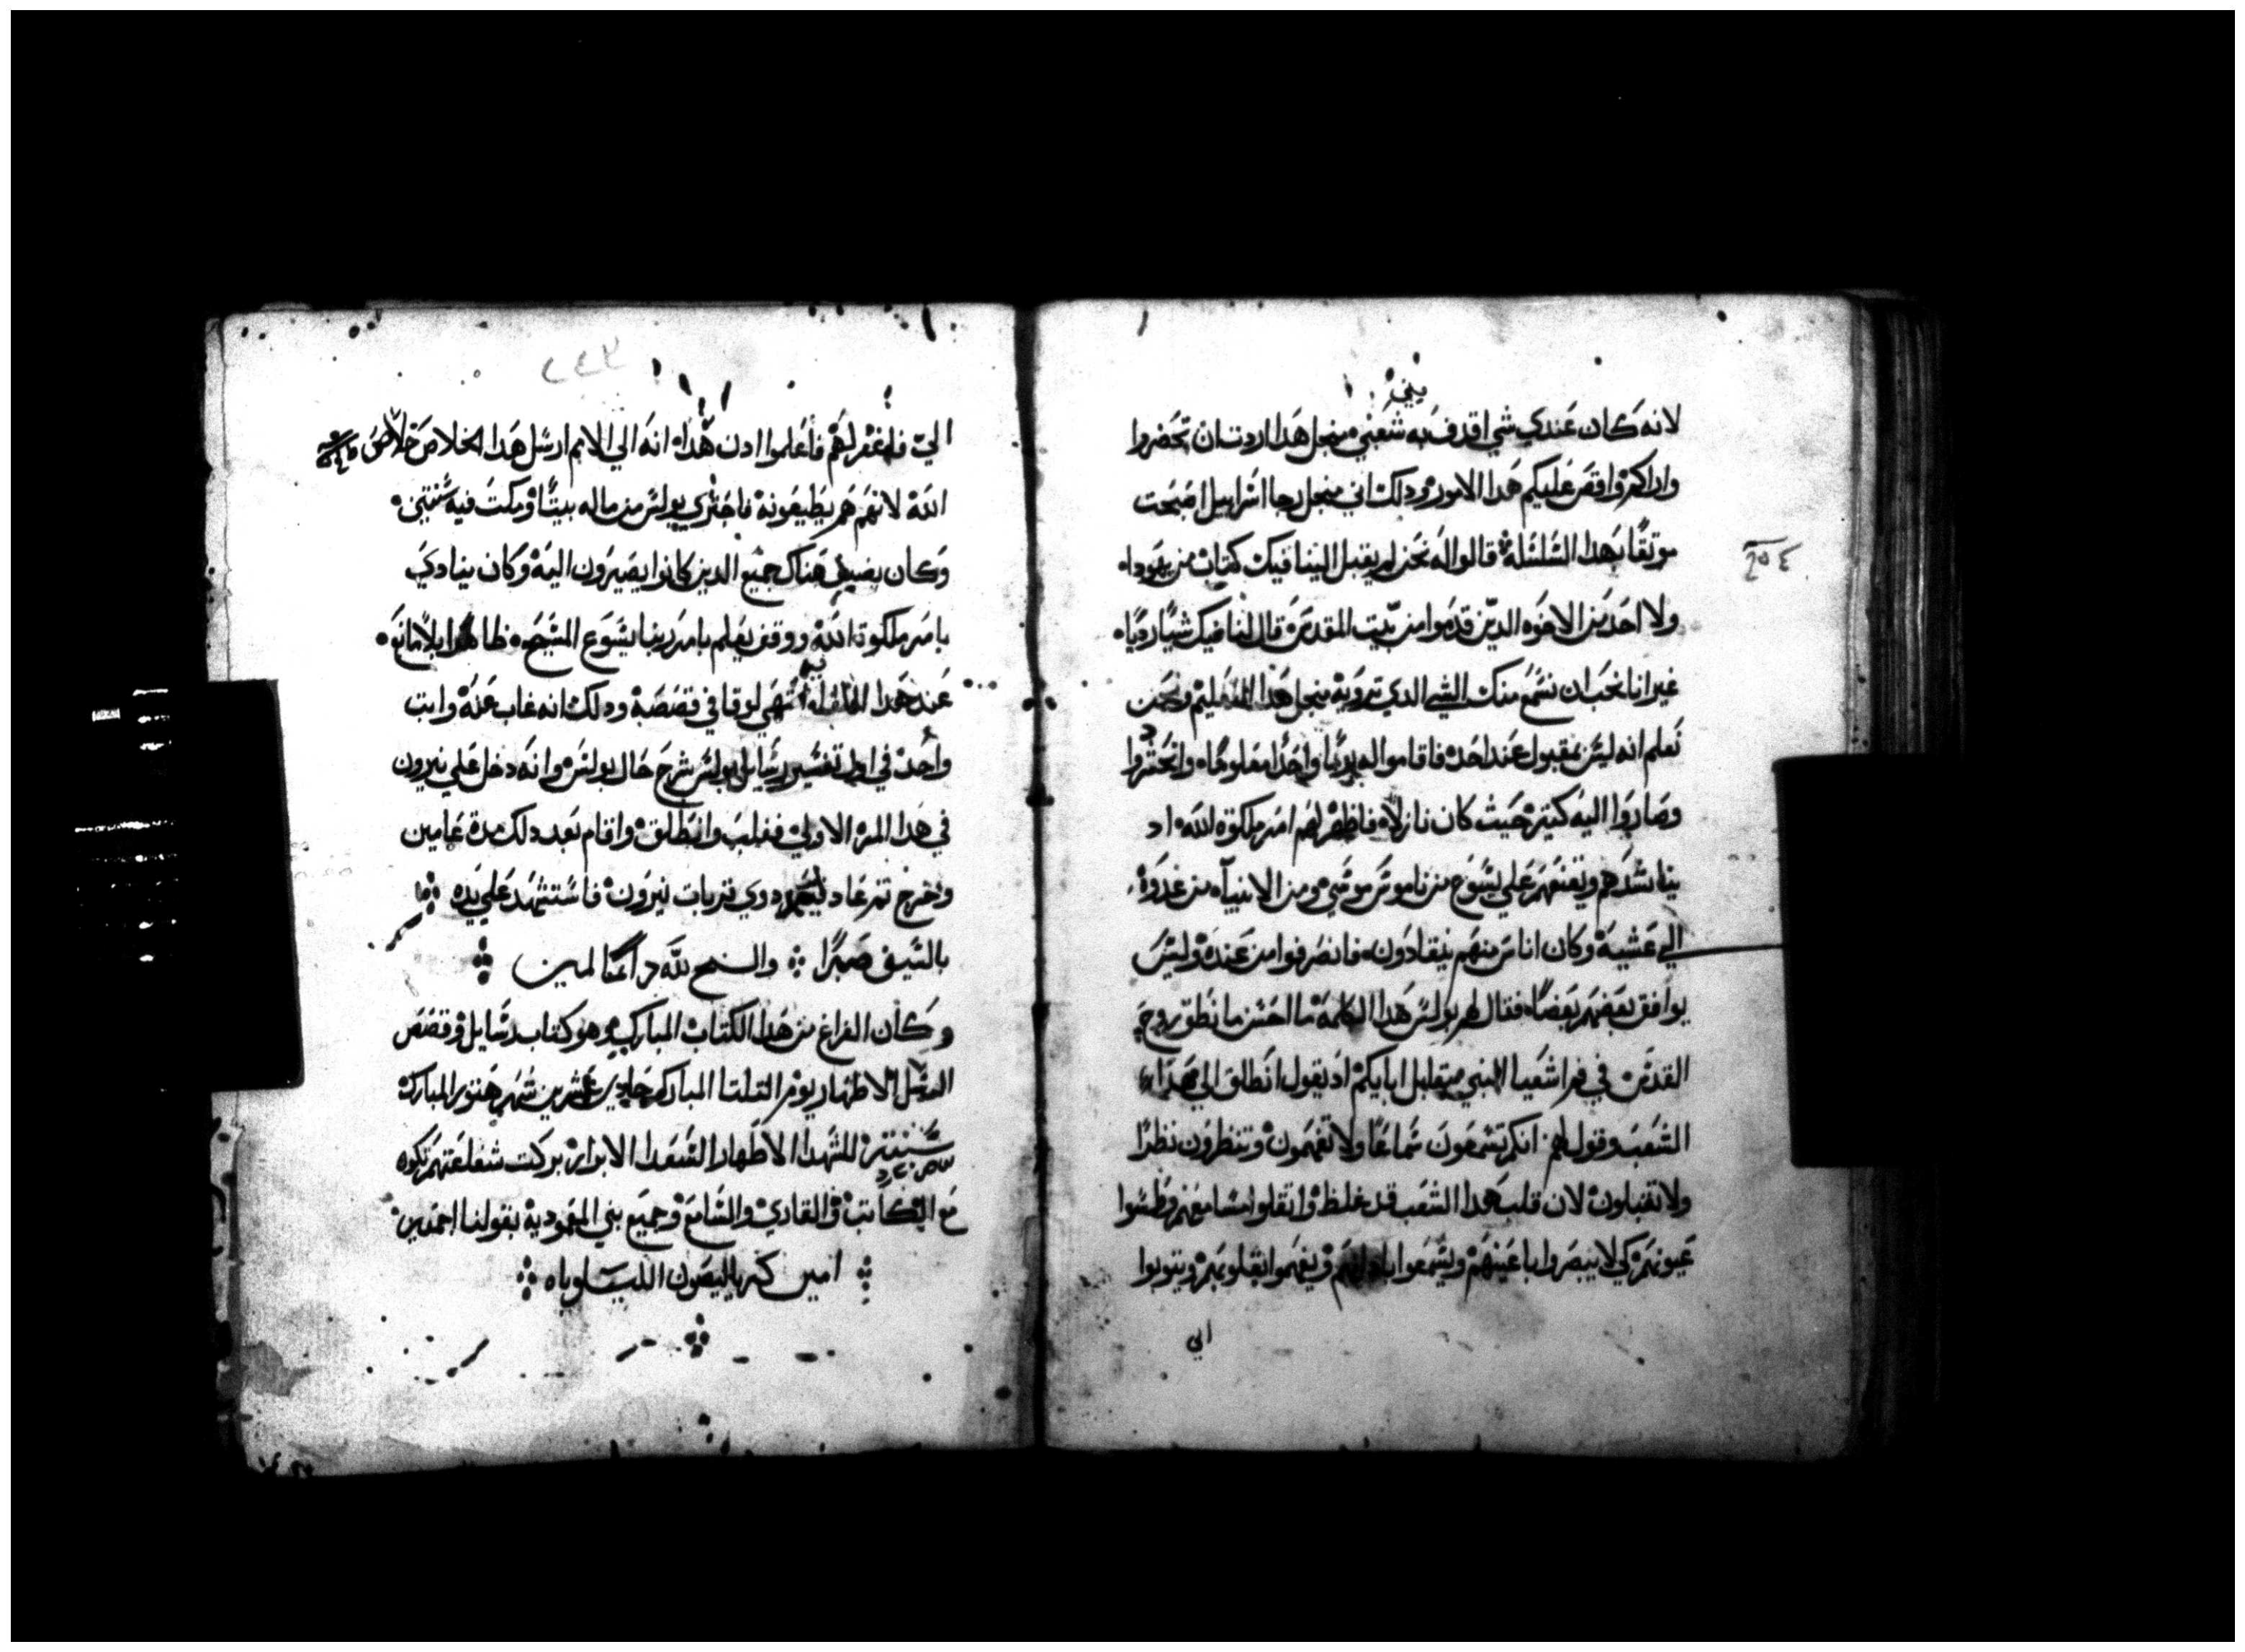 بيني
لانه كان عندي شي اقدف به شعبي منجل هدا اردت ان تحضروا
واراكم واقص عليكم هدا الامور ودلك اني منجل رجا اسراييل اصبحت
موتقا بهدا السلسله قالوا له نحن لم يقبل الينا فيك كتاب من يهودا
ولا احد من الاخوه الدين قدموا من بيت المقدس قال لنا فيك شيا رديا
غير انا نحب ان نسمع منك الشي الدي ترويه منجل هدا التعليم ونحن
نعلم انه ليس بمقبول عند احد فاقاموا له يوما واحدا معلوما واتحشدوا
وصاروا اليه كتير حيث كان نازلا فاظهر لهم امر ملكوة الله اد
يناشدهم ويقنعهم علي يسوع من ناموس موسي ومن الانبيآ من غدوة
الي عشية وكان اناس منهم ينقادون فانصرفوا من عنده وليس
يوافق بعضهم بعضا فقال لهم بولس هدا الكلمة ما احسن ما نطق روح
القدس في فم اشعيا النبي ميقابل ابايكم اد يقول انطلق الي هدا
الشعب وقول لهم انكم تسمعون سماعا ولا تفهمون وتنظرون نظرا
ولا تقبلون لان قلب هدا الشعب قد غلظ واتقلوا مسامعهم وطمسوا
عيونهم كي لا يبصروا باعينهم ويسمعوا بادانهم ويفهموا بقلوبهم ويتوبوا
الي
٢٥٤
الي فاغفر لهم فاعلموا ادن هدا انه الي الامم ارسل هدا الخلاص خلاص
الله لانهم هم يطيعونه فاجتري بولس من ماله بيتا ومكت فيه سنتين
وكان يضيف هناك جميع الدين كانوا يصيرون اليه وكان ينادي
بامر ملكوة الله ووقف يعلم بامر ربنا يسوع المسيح ظاهرا بلا مانع
عند هدا انتهي لوقا في قصصه ودلك انه غاب عنه واتبت
واحد في تفسير رسايل بولس شرح حال بولس وانه دخل علي نيرون
في هدا المره الاولي فغلب وانطلق واقام بعد دلك مدة عامين
وخرج تم عاد دوي قربات نيرون فاستشهد علي يده
بالسيف صبرا والسبح لله دايما امين
وكان الفراغ من هدا الكتاب المبارك وهو كتاب رسايل وقصص
الرسل الاطهار يوم التلتا المبارك حادي عشرين شهر هتور المبارك
سنة للشهدا الاطهار السعدا الابرار بركت شفاعتهم تكون
مع الكاتب والقاري والسامع وجميع بني المعمودية بقولنا اجمعين
امين كيرياليصون الليلوياه